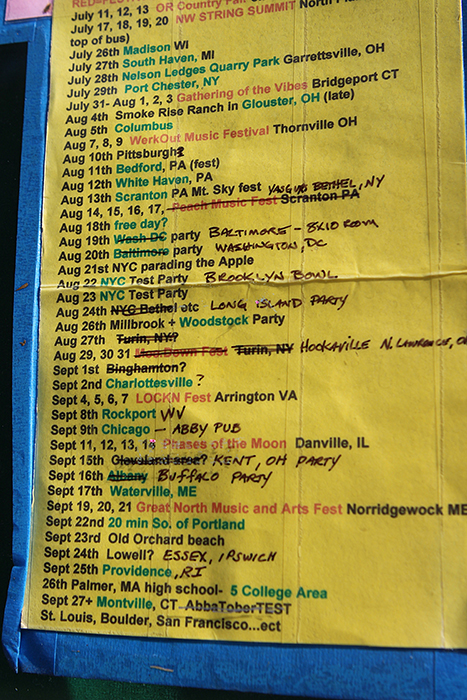 July 11, 12, 13 OR Country Fair
July 17, 18, 19, 20 NW STRING SUMMIT North
top of bus)
July 26th Madison WI
July 27th South Haven, MI
July 28th Nelson Ledges Quarry Park Garrettsville, OH
July 29th Port Chester, NY
July 31- Aug 1, 2, 3 Gathering of the Vibes Bridgeport CT
Aug 4th Smoke Rise Ranch in Glouster, OH (late)
Aug 5th Columbus
Aug 7, 8, 9 WerkOut Music Festival Thornville OH
Aug 10th Pittsburgh
Aug 11th Bedford, PA (fest)
Aug 12th White Haven, PA
Aug 13th Scranton PA Mt. Sky fest YASGUR BETHEL, NY
Aug 14, 15, 16, 17, Peach Music Fest Scranton PA
Aug 18th free day?
Aug 19th Wash DC party BALTIMORE - 8X10 ROOM
Aug 20th Baltimore party WASHINGTON, DC
Aug 21st NYC parading the Apple
Aug 22 NYC Test Party BROOKLYN BOWL
Aug 23 NYC Test Party
Aug 24th NYC Bethel etc LONG ISLAND PARTY
Aug 26th Millbrook + Woodstock Party
Aug 27th Turin, NY?
Aug 29, 30 31 Moo.Down Fest Turin, NY HOOKAVILLE N. LAWRENCE, O
Sept 1st Binghamton?
Sept 2nd Charlottesville ?
Sept 4, 5, 6, 7 LOCKN Fest Arrington VA
Sept 8th Rockport WV
Sept 9th Chicago - ABBY PUB
Sept 11, 12, 13, 14 Phases of the Moon Danville, IL
Sept 15th Cleveland area? KENT, OH PARTY
Sept 16th Albany BUFFALO PARTY
Sept 17th Waterville, ME
Sept 19, 20, 21 Great North Music and Arts Fest Norridgewock ME
Sept 22nd 20 min So. of Portland
Sept 23rd Old Orchard beach
Sept 24th Lowell? ESSEX, IPSWICH
Sept 25th Providence, RI
26th Palmer, MA high school- 5 College Area
Sept 27+ Montville, CT AbbaToberTEST
St. Louis, Boulder, San Francisco...ect